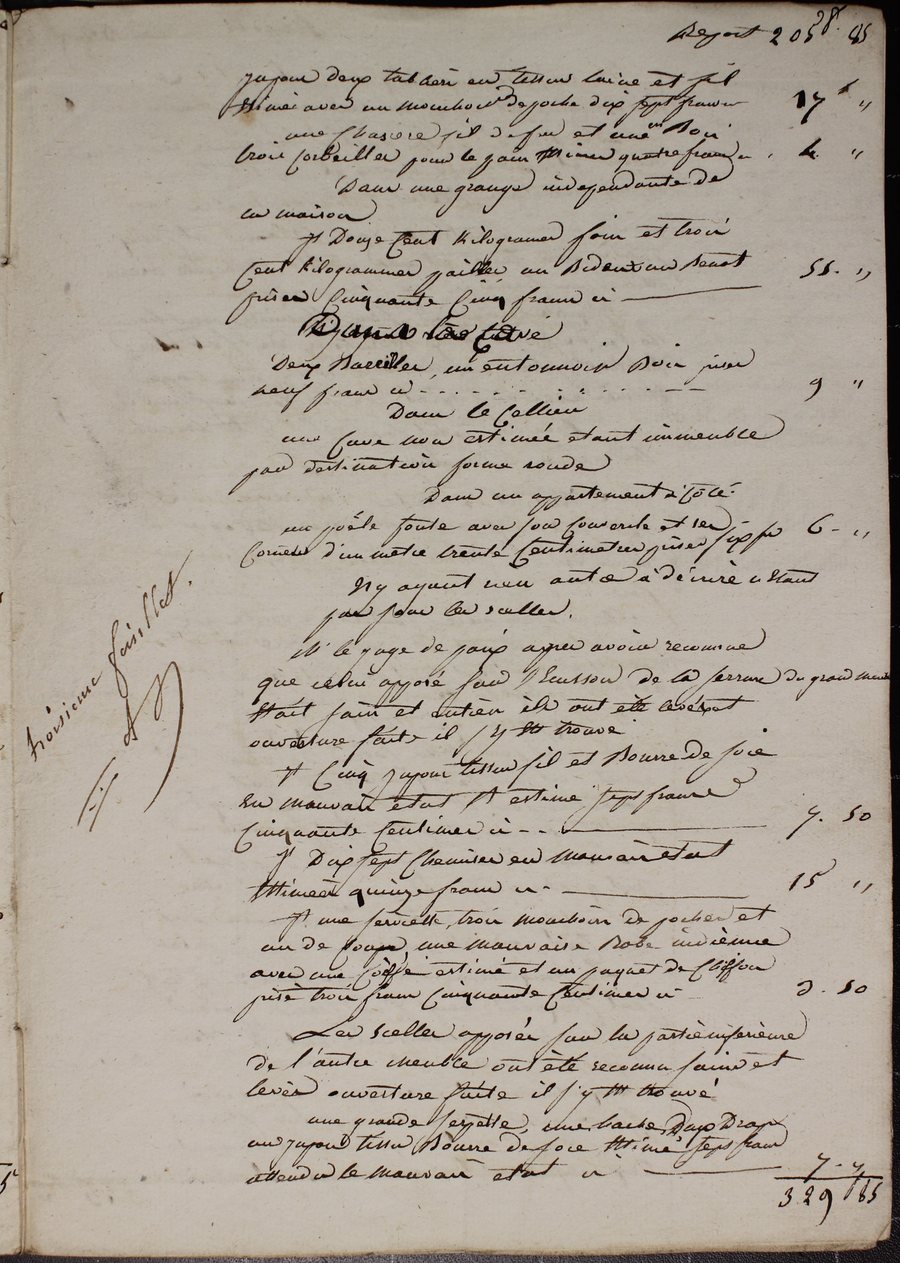 Report 205 fr. 85
jupon deux tabliers en tissu laine et fil
estimés avec un mouchoir de poche dix sept francs 17 f "
une chasere fil de fer et une en Bois
trois corbeilles pour le pain estimés quatre francs ci . 4. "
Dans une grange independante de
la maison
It Douze Cent Kilogrames foin et trois
Cent kilogrammes pailles, un Bident un
prisés Cinquante Cinq francs ci 55 - "
Dans la Cave
Deux Barilles, un entonnoir Bois prisés
neuf francs ci 9 "
Dans le Cellier
une Cuve non estimée etant immeuble
par destination forme ronde
Dans un appartement à Côté.
un poële fonte avec son Couvercle et ses
Cornets d'un metre trente Centimetres prisés six fr 6 - "
N'y ayant rien autre à décrire n'étant
pas sous les scelles.
Mr le juge de paix apres avoir reconnu
que celui apposé sur l'Ecusson de la serrure du grand meuble
était sain et entier ils ont été levés et
ouverture faite il s'y est trouvé
It Cinq jupons tissu fil et Bourre de soie
en mauvais état It estimé sept francs
Cinquante Centimes ci - - 7. 50
It Dix sept Chemises en mauvais état
estimées quinze francs ci - 15 "
It une serviette, trois mouchoirs de poches et
un de, une mauvaise Robe indienne
avec une Coiffe estimé et un paquet de Chiffon
prisé trois francs Cinquante Centimes ci 3. 50
Les scelles apposés sur la partie inferieure
de l'autre meuble ont été reconnu sains et
levés ouverture faite il s'y est trouvé
une grande serpette, une hache Deux Draps
un jupon tissu Bourre de soie estimé sept francs
attendu le mauvais état ci 7 - "
329 85
troisieme feuillet.